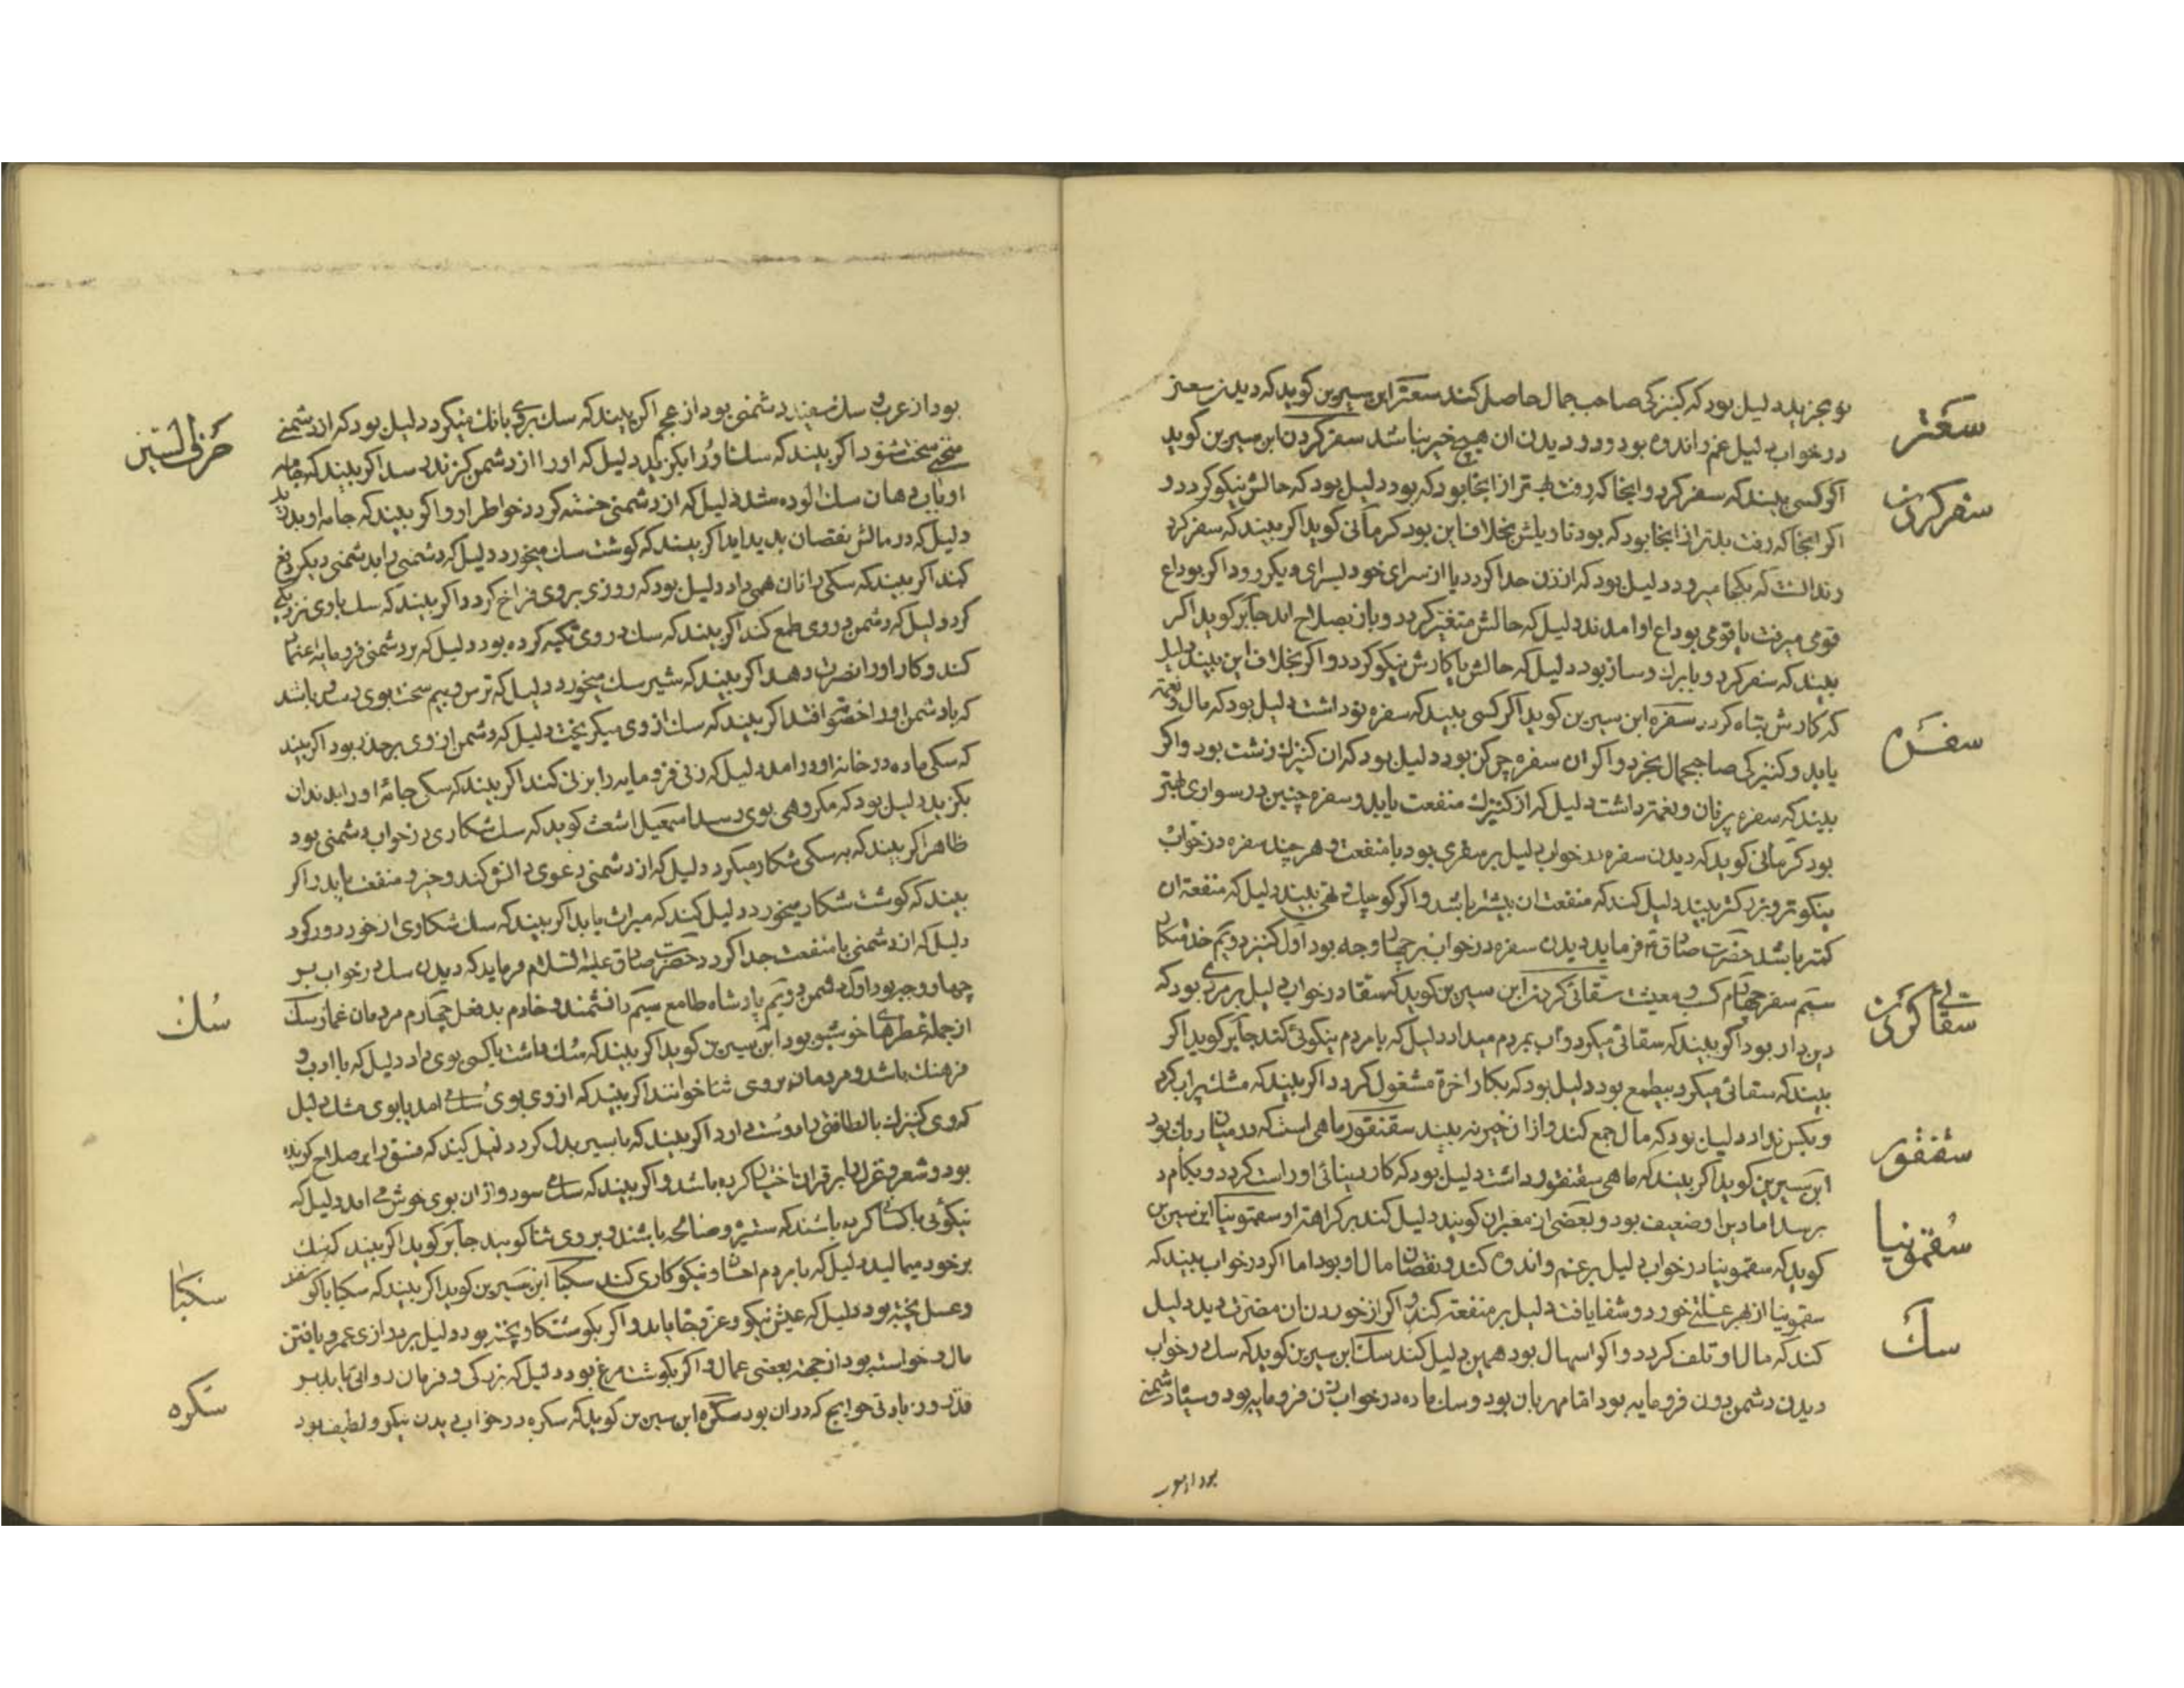 سعتر
نو بخرید دلیل بود که کنیزکی صاحب جمال حاصل کند سعتر ابن سیرین کوید که دیدن سعتر
در خواب دلیل غم و اندوه بود و در دیدن ان هیچ خیر نباشد سفر کردن ابن سیرین کوید
سفر کردن
اکر کسی بیند که سفر کرد و اینجا که رفت بهتر از اینجا بود که بود دلیل بود که حالش نیکو کردد و
اکر اینجا که رفت بدتر از اینجا بود که بود تاویلش بخلاف این بود کرمانی کوید اکر بیند که سفر کرد
و ندانست که بکجا میرود دلیل بود که از زن جدا کردد یا از سرای خود بسرای دیکر رود اکر بوداع
قومی میرفت یا قومی بوداع او امدند دلیل که حالش متغیر کردد و باز بصلاح اید جابر کوید اکر
بیند که سفر کرد و با برک و ساز بود دلیل که حالش یا کارش نیکو کردد و اکر بخلاف این بیند دلیل
که کارش تباه کردد سفره ابن سیرین کوید اکر کسی بیند که سفره نو داشت دلیل بود که مال و نعمت
سفره
یابد و کنیزکی صاحبجمال بخرد و اکر ان سفره چرکن بود دلیل بود که ان کنیزک زشت بود و اکر
بیند که سفره پر نان و نعمت داشت دلیل که از کنیزک منفعت یابد و سفره چنین در سواری بهتر
بود کرمانی کوید که دیدن سفره در خواب دلیل بر سفری بود با منفعت و هر چند سفره در خواب
نیکوتر و بزرکتر بیند دلیل کند که منفعت ان بیشتر باشد و اکر کوچک و تهی بیند دلیل که منفعة ان
کمتر باشد حضرت صادق ع فرماید دیدن سفره در خواب بر چهار وجه بود اول کنیز دویم خدمتکار
سیم سفر چهارم کسب و معیشت سقائی کردن ابن سیرین کوید که سقا در خواب دلیل بر مردی بود که
سقائی کردن
دین دار بود اکر بیند که سقائی میکرد و اب بمردم میداد دلیل که با مردم نیکوئی کند جابر کوید اکر
بیند که سقائی میکرد بیطمع بود دلیل بود که بکار اخرة مشغول کردد اکر بیند که مشک پر اب کرد
و بکس نداد دلیل بود که مال جمع کند و از ان خیر نه بیند سقنقور ماهی است که در میان ریک بود
سقنقور
ابن سیرین کوید اکر بیند که ماهی سقنقور داشت دلیل بود که کار بینائی او راست کردد و بکام
برسد اما دین او ضعیف بود و بعضی از معبران کویند دلیل کند بر کراهت او سقمونیا ابن سیرین
سقمونیا
کوید که سقمونیا در خواب دلیل بر غم و اندوه کند و نقصان مال او بود اما اکر در خواب بیند که
سقمونیا از بهر علتی خورد و شفا یافت دلیل بر منفعت کند و اکر از خوردن ان مضرت دید دلیل
سک
کند که مال او تلف کردد و اکر اسهال بود همین دلیل کند سک ابن سیرین کوید که سک در خواب
دیدن دشمن دون فرومایه بود اما مهربان بود و سک ماده در خواب زن فرومایه بود و سیاه دشمنی
بود از عرب
بود از عرب و سک سفید دشمنی بود از عجم اکر بیند که سک بروی بانک میکرد دلیل بود که از دشمنی
حرف السین
سخنی سخت شنود اکر بیند که سک او را بکزید دلیل که او را از دشمن کزند رسد اکر بیند که جامه
او باب دهان سک الوده شد دلیل که از دشمنی خسته کردد خواطر او و اکر بیند که جامه او بدرید
دلیل که در مالش نقصان پدید اید اکر بیند که کوشت سک میخورد دلیل که دشمنی را بدشمنی دیکر دفع
کند اکر بیند که سکی را نان همی داد دلیل بود که روزی بروی فراخ کردد اکر بیند که سک با وی نزدیکی
کرد دلیل که دشمن در وی طمع کند اکر بیند که سک در وی تکیه کرده بود دلیل که بر دشمنی فرومایه اعتماد
کند و کار او را نصرت دهد اکر بیند که شیر سک میخورد دلیل که ترس و بیم سخت بوی رسد و باشد
که با دشمن او را خصومت افتد اکر بیند که سک از وی میکریخت دلیل که دشمن از وی برحذر بود اکر بیند
که سکی ماده در خانه او در امد دلیل که زنی فرومایه را بزنی کند اکر بیند که سکی جامه او را بدندان
بکزید دلیل بود که مکروهی بوی رسد اسمعیل اشعث کوید که سک شکاری در خواب دشمنی بود
ظاهر اکر بیند که به سکی شکار میکرد دلیل که از دشمنی دعوی دانش کند و خیر و منفعت یابد و اکر
بیند که کوشت شکار میخورد دلیل کند که میراث یابد اکر بیند که سک شکاری از خود دور کرد
دلیل که از دشمنی با منفعت جدا کردد حضرت صادق علیه السلام فرماید که دیدن سک در خواب بر
چهار وجه بود اول دشمن دویم پادشاه طامع سیم دانشمند و خادم بدفعل چهارم مردمان غماز سک
سک
از جمله عطرها خوشبو بود ابن سیرین کوید اکر بیند که سک داشت یا کسی بوی داد دلیل که با ادب و
فرهنک باشد و مردمان بروی ثنا خوانند اکر بیند که از وی بوی سک می امد یا بوی مشک دلیل
بود و شعر و غزل را بر قران اختیار کرده باشد و اکر بیند که سک می سود و از ان بوی خوش می امد دلیل که
نیکوئی با کسان کرده باشد که ستیزه و صالحه باشند و بر وی ثنا کویند جابر کوید اکر بیند که سک
بر خود میمالید دلیل که با مردم احسان و نیکوکاری کند سکبا ابن سیرین کوید اکر بیند که سکبا با کوسفند
سکبا
و عسل پخته بود دلیل که عیش نیکو و عز و جاه یابد و اکر بکوشت کاو پخته بود دلیل بر درازی عمر و یافتن
مال و خواسته بود از جهة بعضی عمال و اکر بکوشت مرغ بود دلیل که بزرکی و فرمان روائی یابد بر
سکره
قدر و زیادتی حوایج که در ان بود سکره ابن سیرین کوید که سکره در خواب دیدن نیکو و لطیف بود